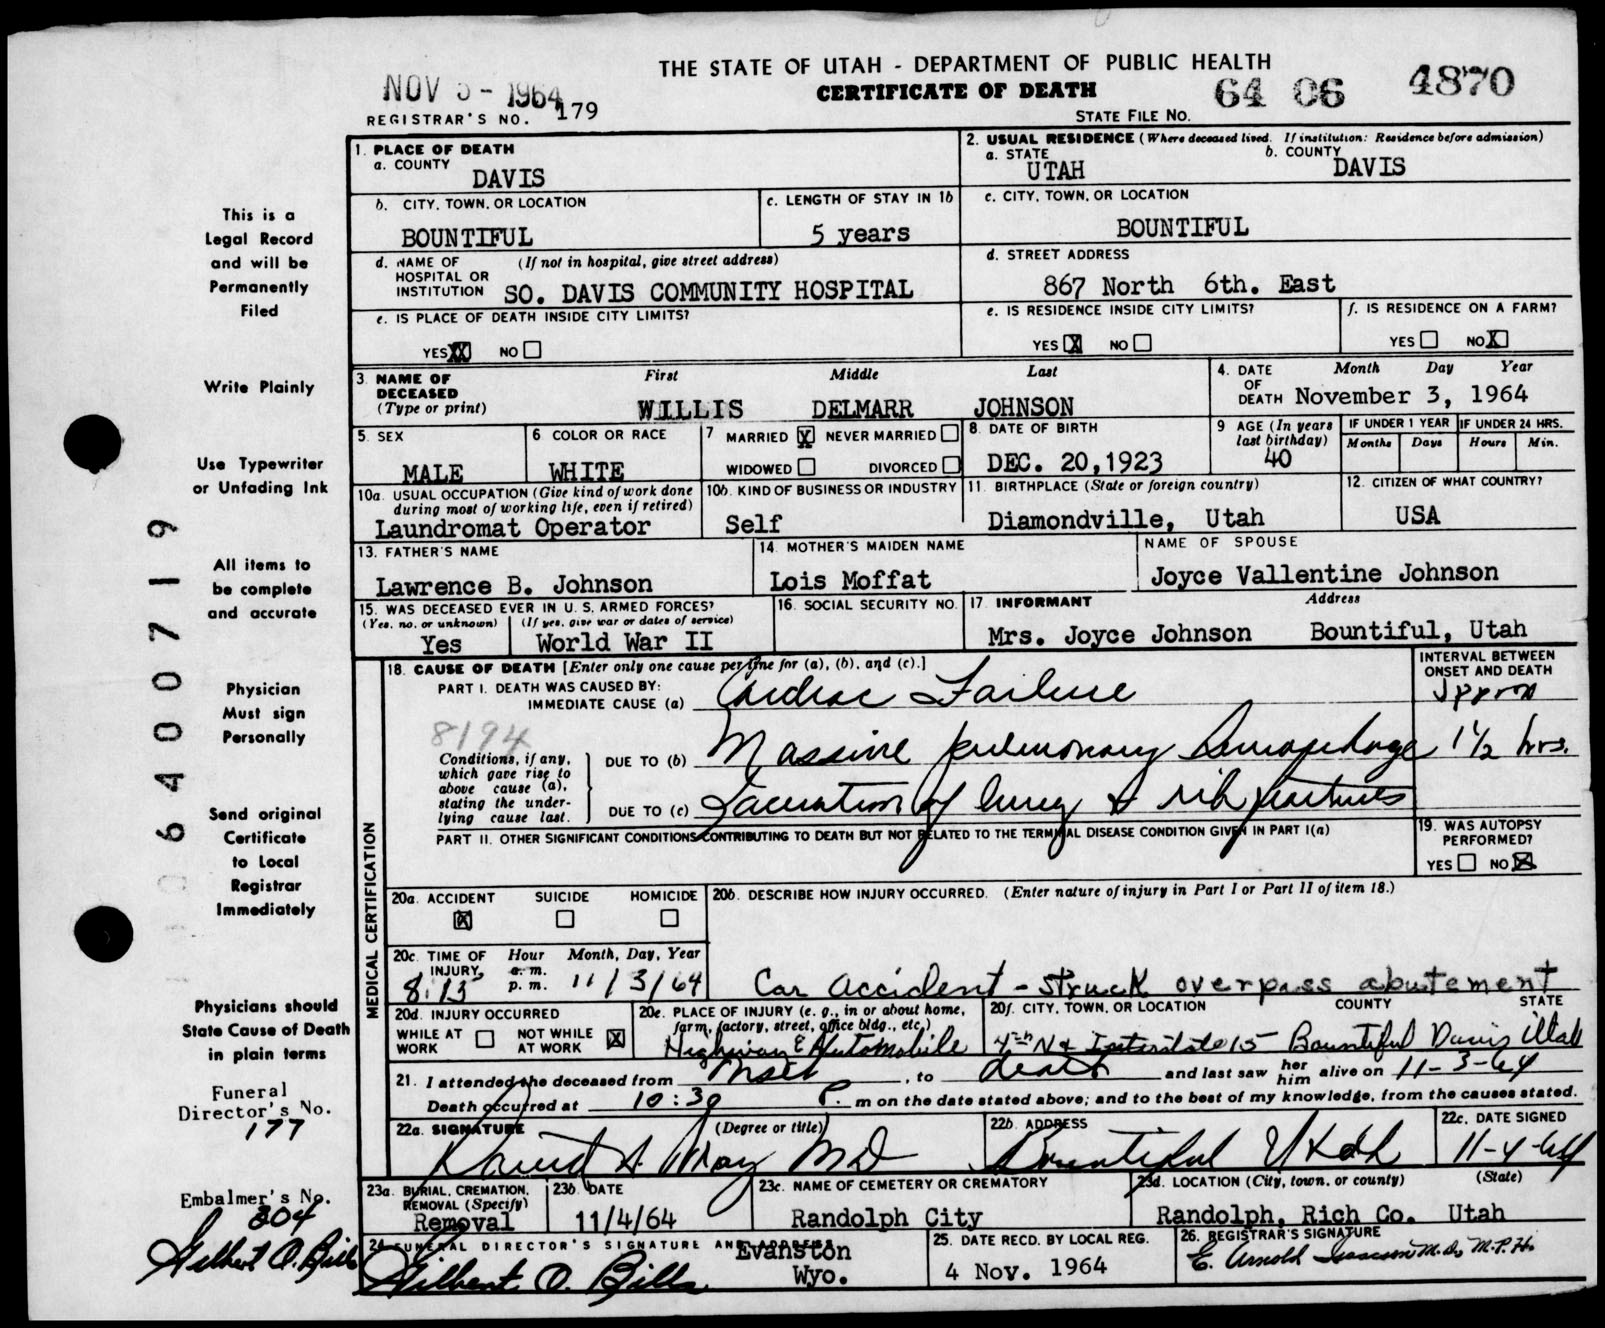 THE STATE OF UTAH - DEPARTMENT OF PUBLIC HEALTH
CERTIFICATE OF DEATH
NOV 5 - 1964
REGISTRAR'S NO. 179
STATE FILE NO. 64 06 4870
1. PLACE OF DEATH
a. COUNTY
DAVIS
2. USUAL RESIDENCE (Where deceased lived. If institution: Residence before admission)
a. STATE UTAH b. COUNTY DAVIS
b. CITY, TOWN, OR LOCATION
BOUNTIFUL
c. LENGTH OF STAY IN 1b
5 years
c. CITY, TOWN, OR LOCATION
BOUNTIFUL
d. NAME OF HOSPITAL OR INSTITUTION (If not in hospital, give street address)
SO. DAVIS COMMUNITY HOSPITAL
d. STREET ADDRESS
867 North 6th. East
e. IS PLACE OF DEATH INSIDE CITY LIMITS?
YES XX NO
e. IS RESIDENCE INSIDE CITY LIMITS?
YES X NO
f. IS RESIDENCE ON A FARM?
YES NO X
3. NAME OF DECEASED (Type or print)
First Middle Last
WILLIS DELMARR JOHNSON
4. DATE OF DEATH Month Day Year
November 3, 1964
5. SEX
MALE
6. COLOR OR RACE
WHITE
7. MARRIED X NEVER MARRIED
WIDOWED DIVORCED
8. DATE OF BIRTH
DEC. 20,1923
9. AGE (In years last birthday)
40
IF UNDER 1 YEAR IF UNDER 24 HRS.
Months Days Hours Min.
10a. USUAL OCCUPATION (Give kind of work done during most of working life, even if retired)
Laundromat Operator
10b. KIND OF BUSINESS OR INDUSTRY
Self
11. BIRTHPLACE (State or foreign country)
Diamondville, Utah
12. CITIZEN OF WHAT COUNTRY?
USA
13. FATHER'S NAME
Lawrence B. Johnson
14. MOTHER'S MAIDEN NAME
Lois Moffat
NAME OF SPOUSE
Joyce Vallentine Johnson
15. WAS DECEASED EVER IN U. S. ARMED FORCES?
(Yes, no, or unknown) (If yes, give war or dates of service)
Yes World War II
16. SOCIAL SECURITY NO.
17. INFORMANT Address
Mrs. Joyce Johnson Bountiful, Utah
MEDICAL CERTIFICATION
18. CAUSE OF DEATH [Enter only one cause per line for (a), (b), and (c).]
INTERVAL BETWEEN ONSET AND DEATH
PART I. DEATH WAS CAUSED BY:
IMMEDIATE CAUSE (a) Cardiac Failure
8194
Conditions, if any, which gave rise to above cause (a), stating the underlying cause last.
DUE TO (b) Massive pulmonary 1½ hrs.
DUE TO (c) Laceration of lung & rib fractures
PART II. OTHER SIGNIFICANT CONDITIONS CONTRIBUTING TO DEATH BUT NOT RELATED TO THE TERMINAL DISEASE CONDITION GIVEN IN PART I(a)
19. WAS AUTOPSY PERFORMED?
YES NO X
20a. ACCIDENT X SUICIDE HOMICIDE
20b. DESCRIBE HOW INJURY OCCURRED. (Enter nature of injury in Part I or Part II of item 18.)
Car accident - struck overpass abutement
20c. TIME OF INJURY Hour a. m. p. m. Month, Day, Year
8:15 11/3/64
20d. INJURY OCCURRED
WHILE AT WORK NOT WHILE AT WORK X
20e. PLACE OF INJURY (e. g., in or about home, farm, factory, street, office bldg., etc.)
Highway & Automobile
20f. CITY, TOWN, OR LOCATION COUNTY STATE
4th N & Interstate 15 Bountiful Davis Utah
21. I attended the deceased from , to death and last saw her him alive on 11-3-64
Death occurred at 10:30 P. m on the date stated above; and to the best of my knowledge, from the causes stated.
22a. SIGNATURE (Degree or title)
David A. MD
22b. ADDRESS
Bountiful Utah
22c. DATE SIGNED
11-4-64
23a. BURIAL, CREMATION, REMOVAL (Specify)
Removal
23b. DATE
11/4/64
23c. NAME OF CEMETERY OR CREMATORY
Randolph City
23d. LOCATION (City, town, or county) (State)
Randolph, Rich Co. Utah
24. FUNERAL DIRECTOR'S SIGNATURE AND ADDRESS
Gilbert O. Bills Evanston Wyo.
25. DATE RECD. BY LOCAL REG.
4 Nov. 1964
26. REGISTRAR'S SIGNATURE
E. Arnold Isaacson M.D. M.P.H.
This is a
Legal Record
and will be
Permanently
Filed
Write Plainly
Use Typewriter
or Unfading Ink
All items to
be complete
and accurate
Physician
Must sign
Personally
Send original
Certificate
to Local
Registrar
Immediately
Physicians should
State Cause of Death
in plain terms
Funeral
Director's No.
177
Embalmer's No.
804
Gilbert O. Bills
06400719